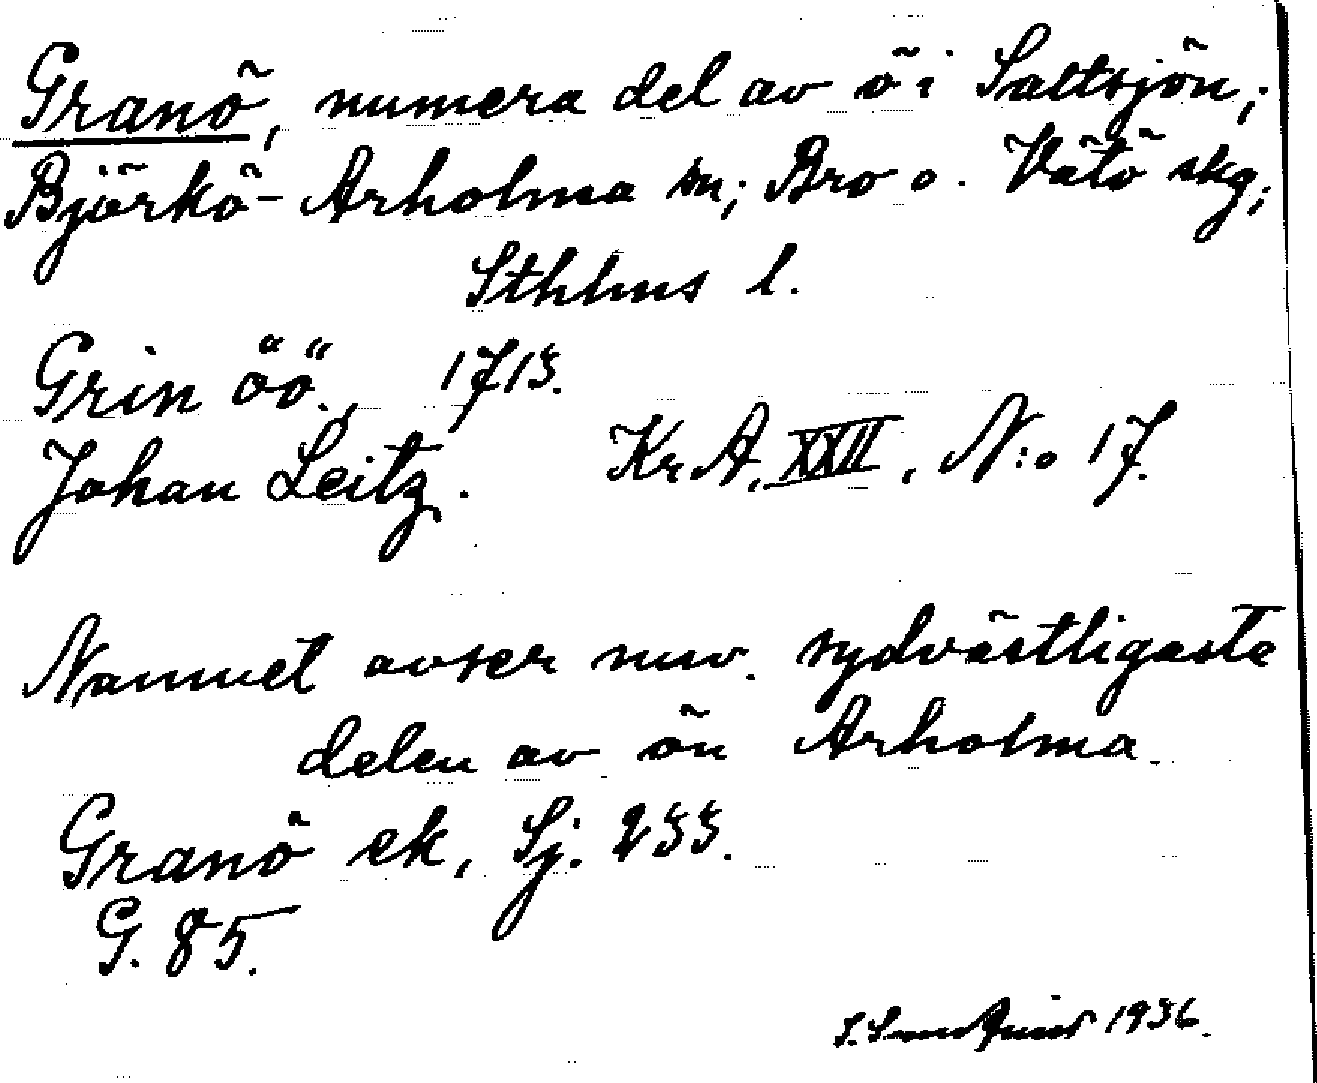 Granö, numera del av ö i Saltsjön,;
Björkö-Arholma sn; Bro o. Vätö skg;
Sthlms l.
Grin öö., 1713.
Johan Leitz. Kr. A. XXII, N:o 17.
Namnet avser nuv. sydvästligaste
delen av ön Arholma.
Granö ek, Sj. 233.
G. 85.
1936.